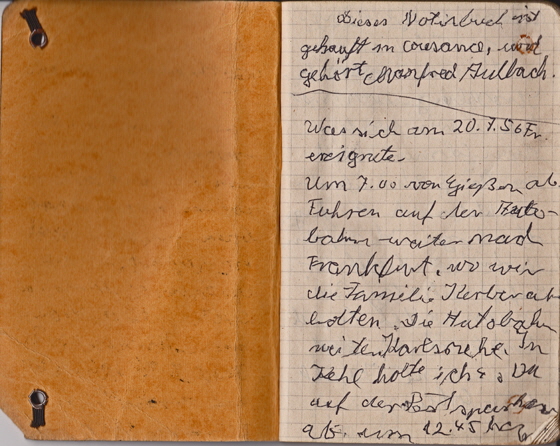 Dieses Notizbuch ist
gekauft in cousance, und
gehört Manfred Aulbach.
Was sich am 20.7.56 Fr.
ereignete.
Um 7.00 von Gießen ab
Fuhren auf der Auto-
bahn weiter nach
Frankfurt, wo wir
die Familie Kerber ab
holten. Die Autobahn
weiter Karlsruhe. In
Kehl holte ich
auf der Post
ab. um 12.45